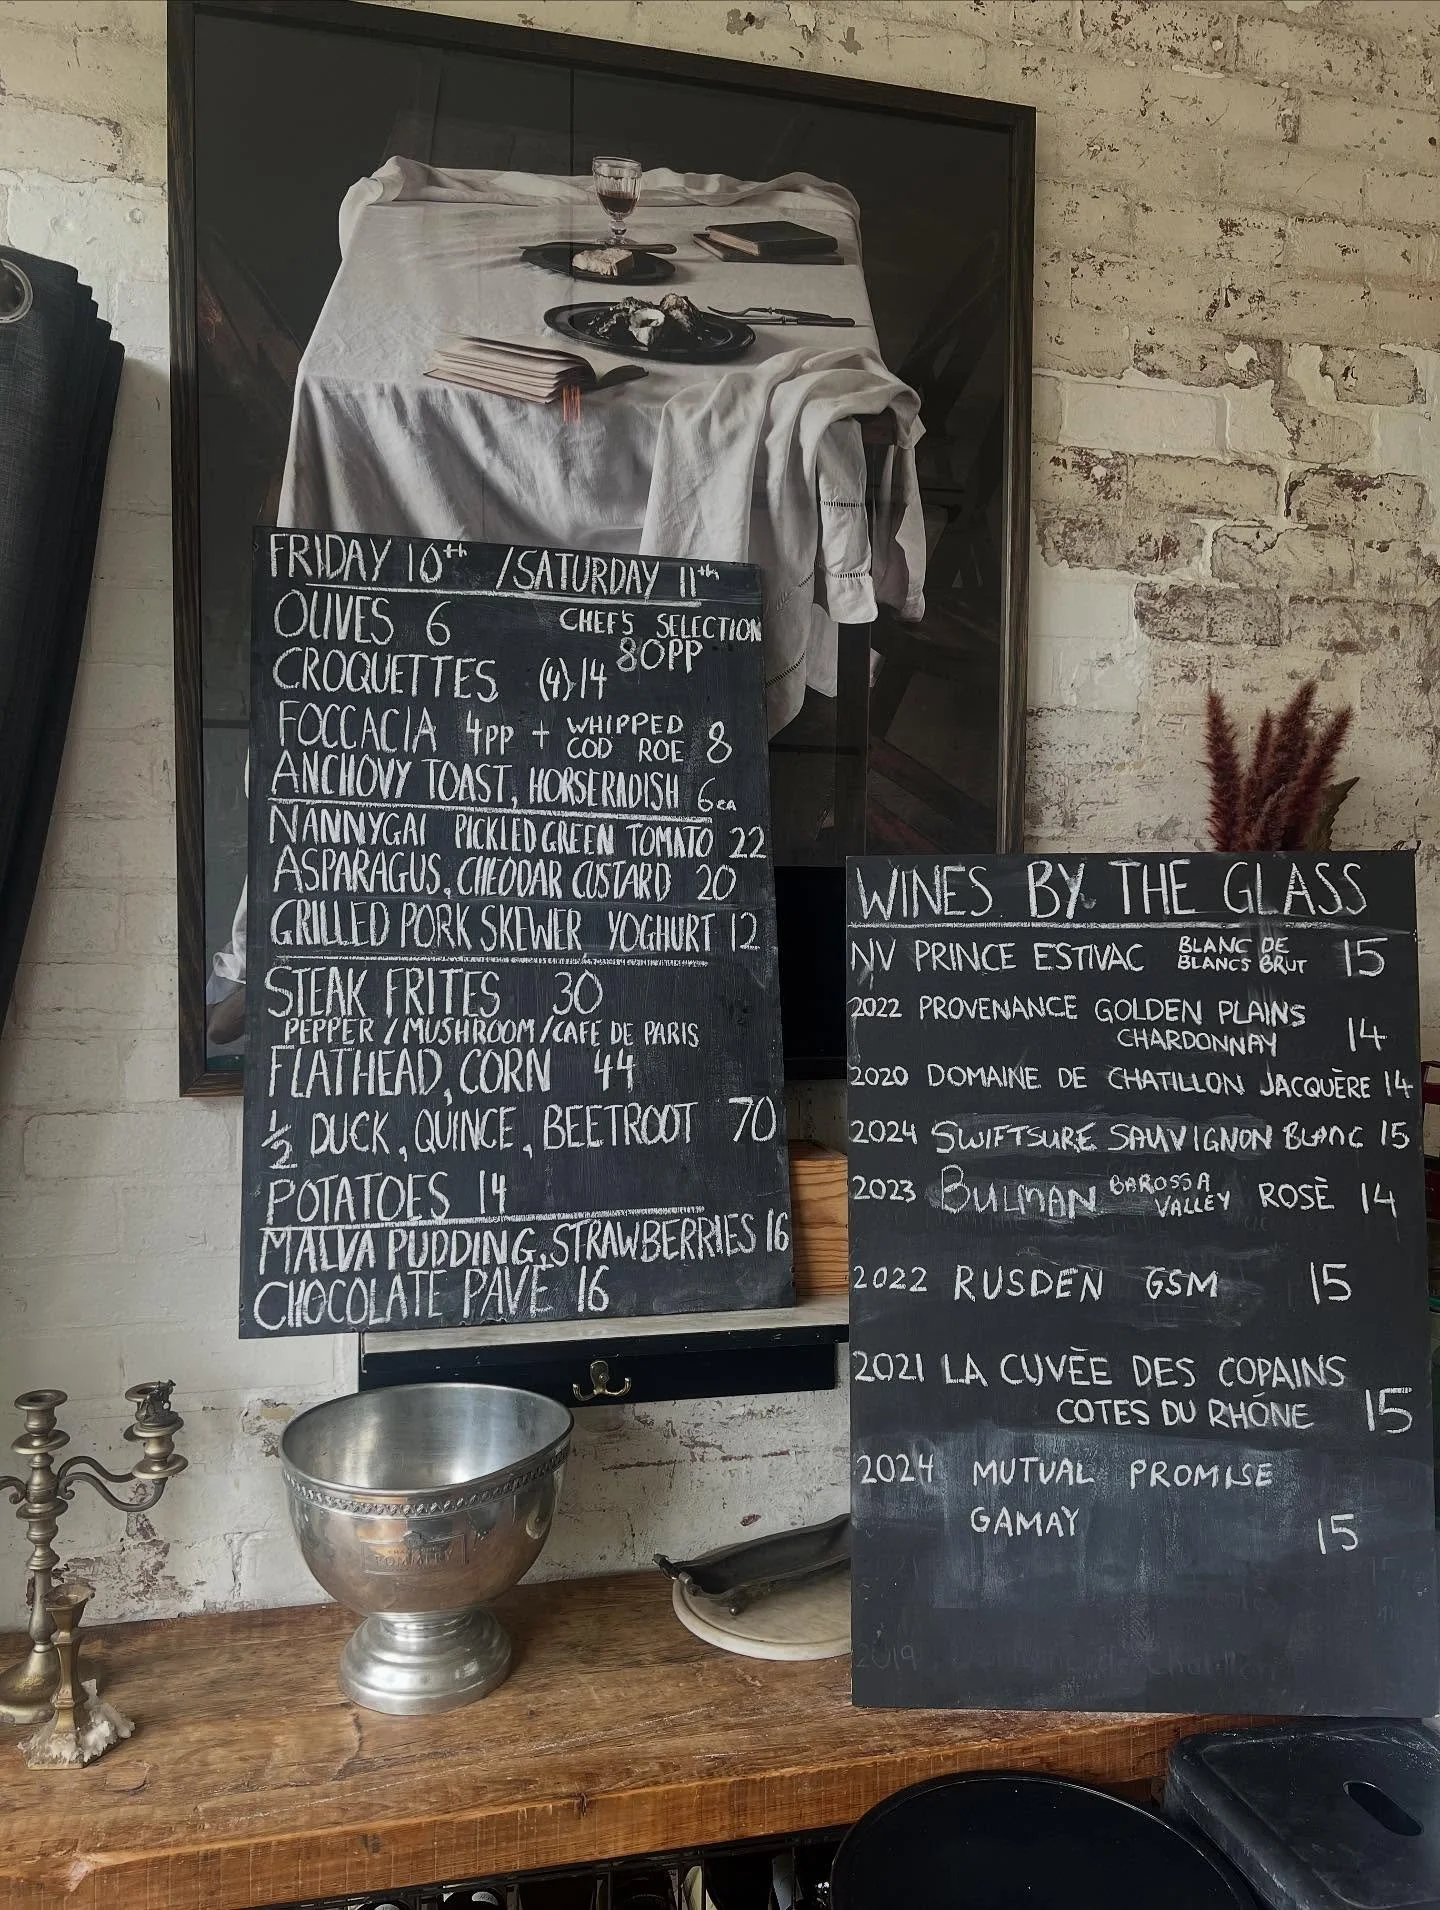 FRIDAY 10th / SATURDAY 11th
OLIVES 6
CHEF'S SELECTION
80PP
CROQUETTES (4) 14
FOCCACIA 4pp + WHIPPED
COD ROE 8
ANCHOVY TOAST, HORSERADISH 6ea
NANNYGAI PICKLED GREEN TOMATO 22
ASPARAGUS, CHEDDAR CUSTARD 20
GRILLED PORK SKEWER YOGHURT 12
STEAK FRITES 30
PEPPER / MUSHROOM / CAFE DE PARIS
FLATHEAD, CORN 44
1/2 DUCK, QUINCE, BEETROOT 70
POTATOES 14
MALVA PUDDING, STRAWBERRIES 16
CHOCOLATE PAVÉ 16
WINES BY THE GLASS
NV PRINCE ESTIVAC BLANC DE
BLANCS BRUT 15
2022 PROVENANCE GOLDEN PLAINS
CHARDONNAY 14
2020 DOMAINE DE CHATILLON JACQUÈRE 14
2024 SWIFTSURE SAUVIGNON BLANC 15
2023 BULMAN BAROSSA
VALLEY ROSÈ 14
2022 RUSDEN GSM 15
2021 LA CUVÉE DES COPAINS
COTES DU RHÔNE 15
2024 MUTUAL PROMISE
GAMAY 15
POMMERY
2019